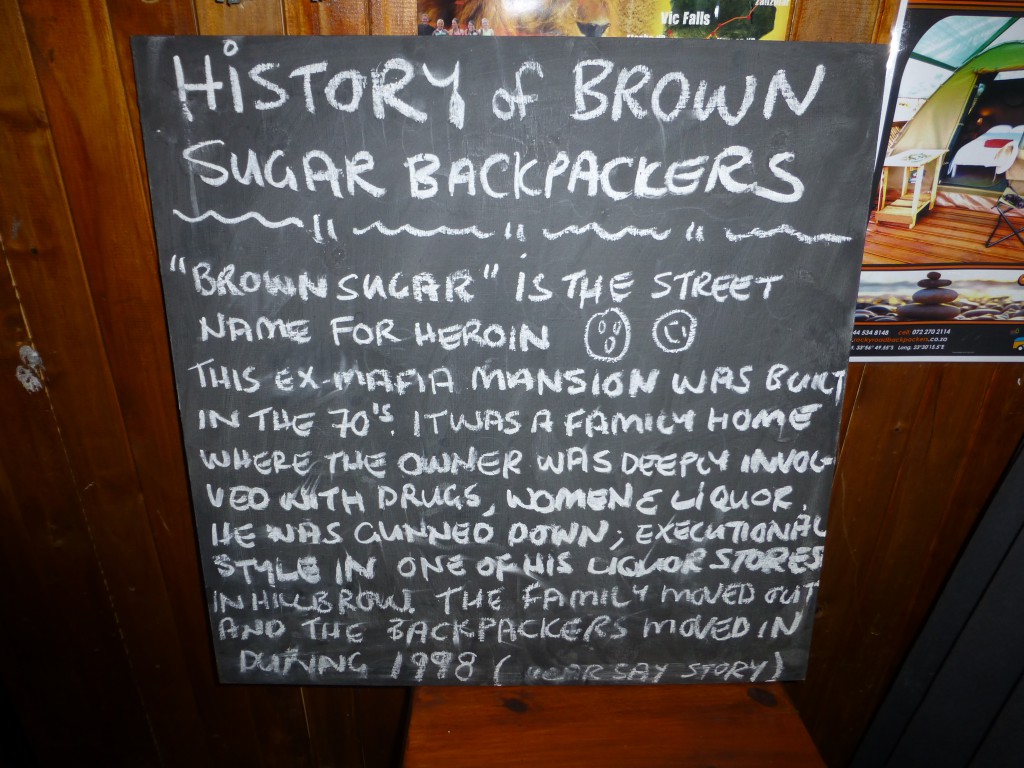 Vic Falls
HiSTORY of BROWN
SUGAR BACKPACKERS
"BROWN SUGAR" iS THE STREET
NAME FOR HEROIN
THIS EX-MAFIA MANSION WAS BUILT
IN THE 70's. IT WAS A FAMILY HOME
WHERE THE OWNER WAS DEEPLY INVOL-
VED WITH DRUGS, WOMEN & LiQUOR.
HE WAS GUNNED DOWN, EXECUTIONAL
STYLE IN ONE OF HIS LIQUOR STORES
IN HILLBROW. THE FAMILY MOVED OUT
AND THE BACKPACKERS MOVED IN
DURING 1998 (HEAR SAY STORY)
44 534 8148 cell: 072 270 2114